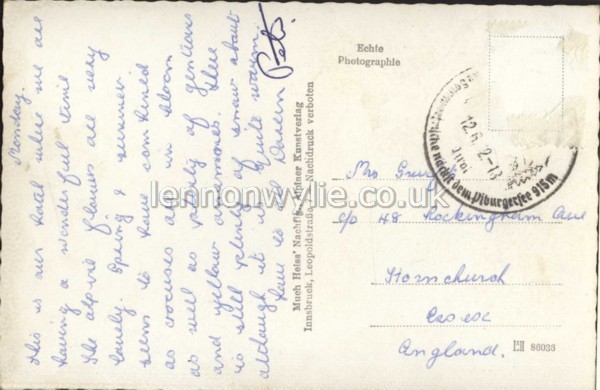 Monday.
This is our hotel where we are
having a wonderful time
The alpine flowers are very
lovely. Spring & summer
seem to have combined
as crocuses are in bloom
as well as plenty of gentians
and yellow anemones. There
is still plenty of snow about
although it is quite warm.
Love to all
Peter
Much Heiss' Nachflg., Alpiner Kunstverlag
Innsbruck, Leopoldstraße Nachdruck verboten
Echte
Photographie
12.6.
Tirol
nächst dem Piburgersee 915m
lennonwylie.co.uk
Mrs
c/o 48 Rockingham Ave
Hornchurch
Essex
England.
86036